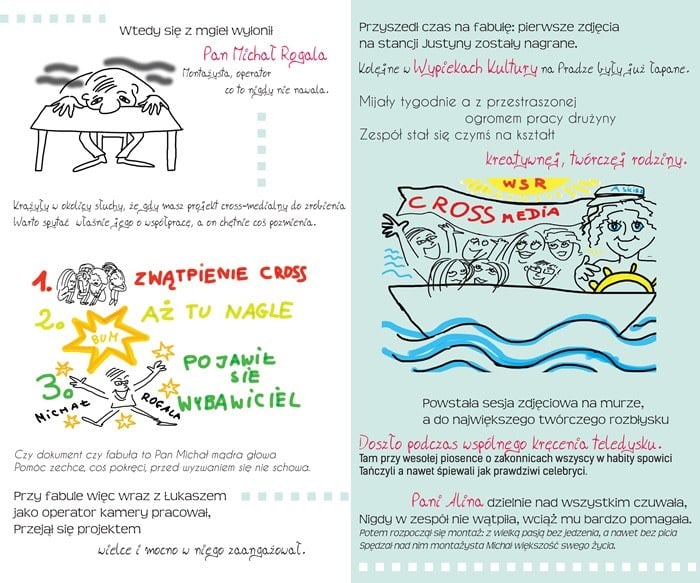 Wtedy się z mgieł wyłonił
Pan Michał Rogala
Montażysta, operator
co to nigdy nie nawala.
Krążyły w okolicy słuchy, że gdy masz projekt cross-medialny do zrobienia
Warto spytać właśnie jego o współpracę, a on chętnie coś pozmienia.
1. ZWĄTPIENIE CROSS
2. AŻ TU NAGLE
BUM
3. POJAWIŁ
SIĘ
WYBAWICIEL
MICHAŁ ROGALA
Czy dokument czy fabuła to Pan Michał mądra głowa
Pomóc zechce, coś pokręci, przed wyzwaniem się nie schowa.
Przy fabule więc wraz z Łukaszem
jako operator kamery pracował,
Przejął się projektem
wielce i mocno w niego zaangażował.
Przyszedł czas na fabułę: pierwsze zdjęcia
na stancji Justyny zostały nagrane.
Kolejne w Wypiekach Kultury na Pradze były już łapane.
Mijały tygodnie a z przestraszonej
ogromem pracy drużyny
Zespół stał się czymś na kształt
kreatywnej, twórczej rodziny.
WSR
CROSS MEDIA
Powstała sesja zdjęciowa na murze,
a do największego twórczego rozbłysku
Doszło podczas wspólnego kręcenia teledysku.
Tam przy wesołej piosence o zakonnicach wszyscy w habity spowici
Tańczyli a nawet śpiewali jak prawdziwi celebryci.
Pani Alina dzielnie nad wszystkim czuwała,
Nigdy w zespół nie wątpiła, wciąż mu bardzo pomagała.
Potem rozpoczął się montaż: z wielką pasją bez jedzenia, a nawet bez picia
Spędzał nad nim montażysta Michał większość swego życia.